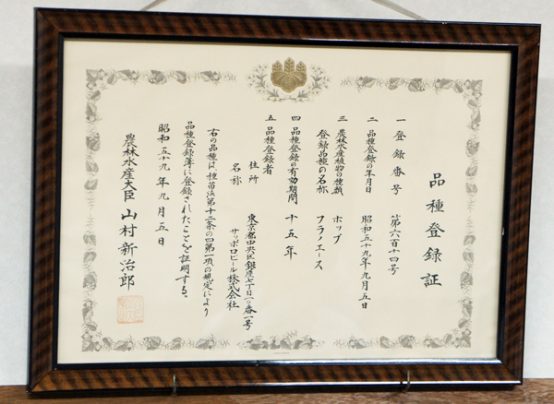 品種登録証
一 登録番号 第六百十四号
二 品種登録の年月日 昭和五十九年九月五日
三 農林水産植物の種類 ホップ
登録品種の名称 フラノエース
四 品種登録の有効期間 十五年
五 品種登録者
住所 東京都中央区銀座七丁目一〇番一号
名称 サッポロビール株式会社
右の品種は、種苗法第十二条の四第一項の規定により
品種登録簿に登録されたことを証明する。
昭和五十九年九月五日
農林水産大臣 山村新治郎